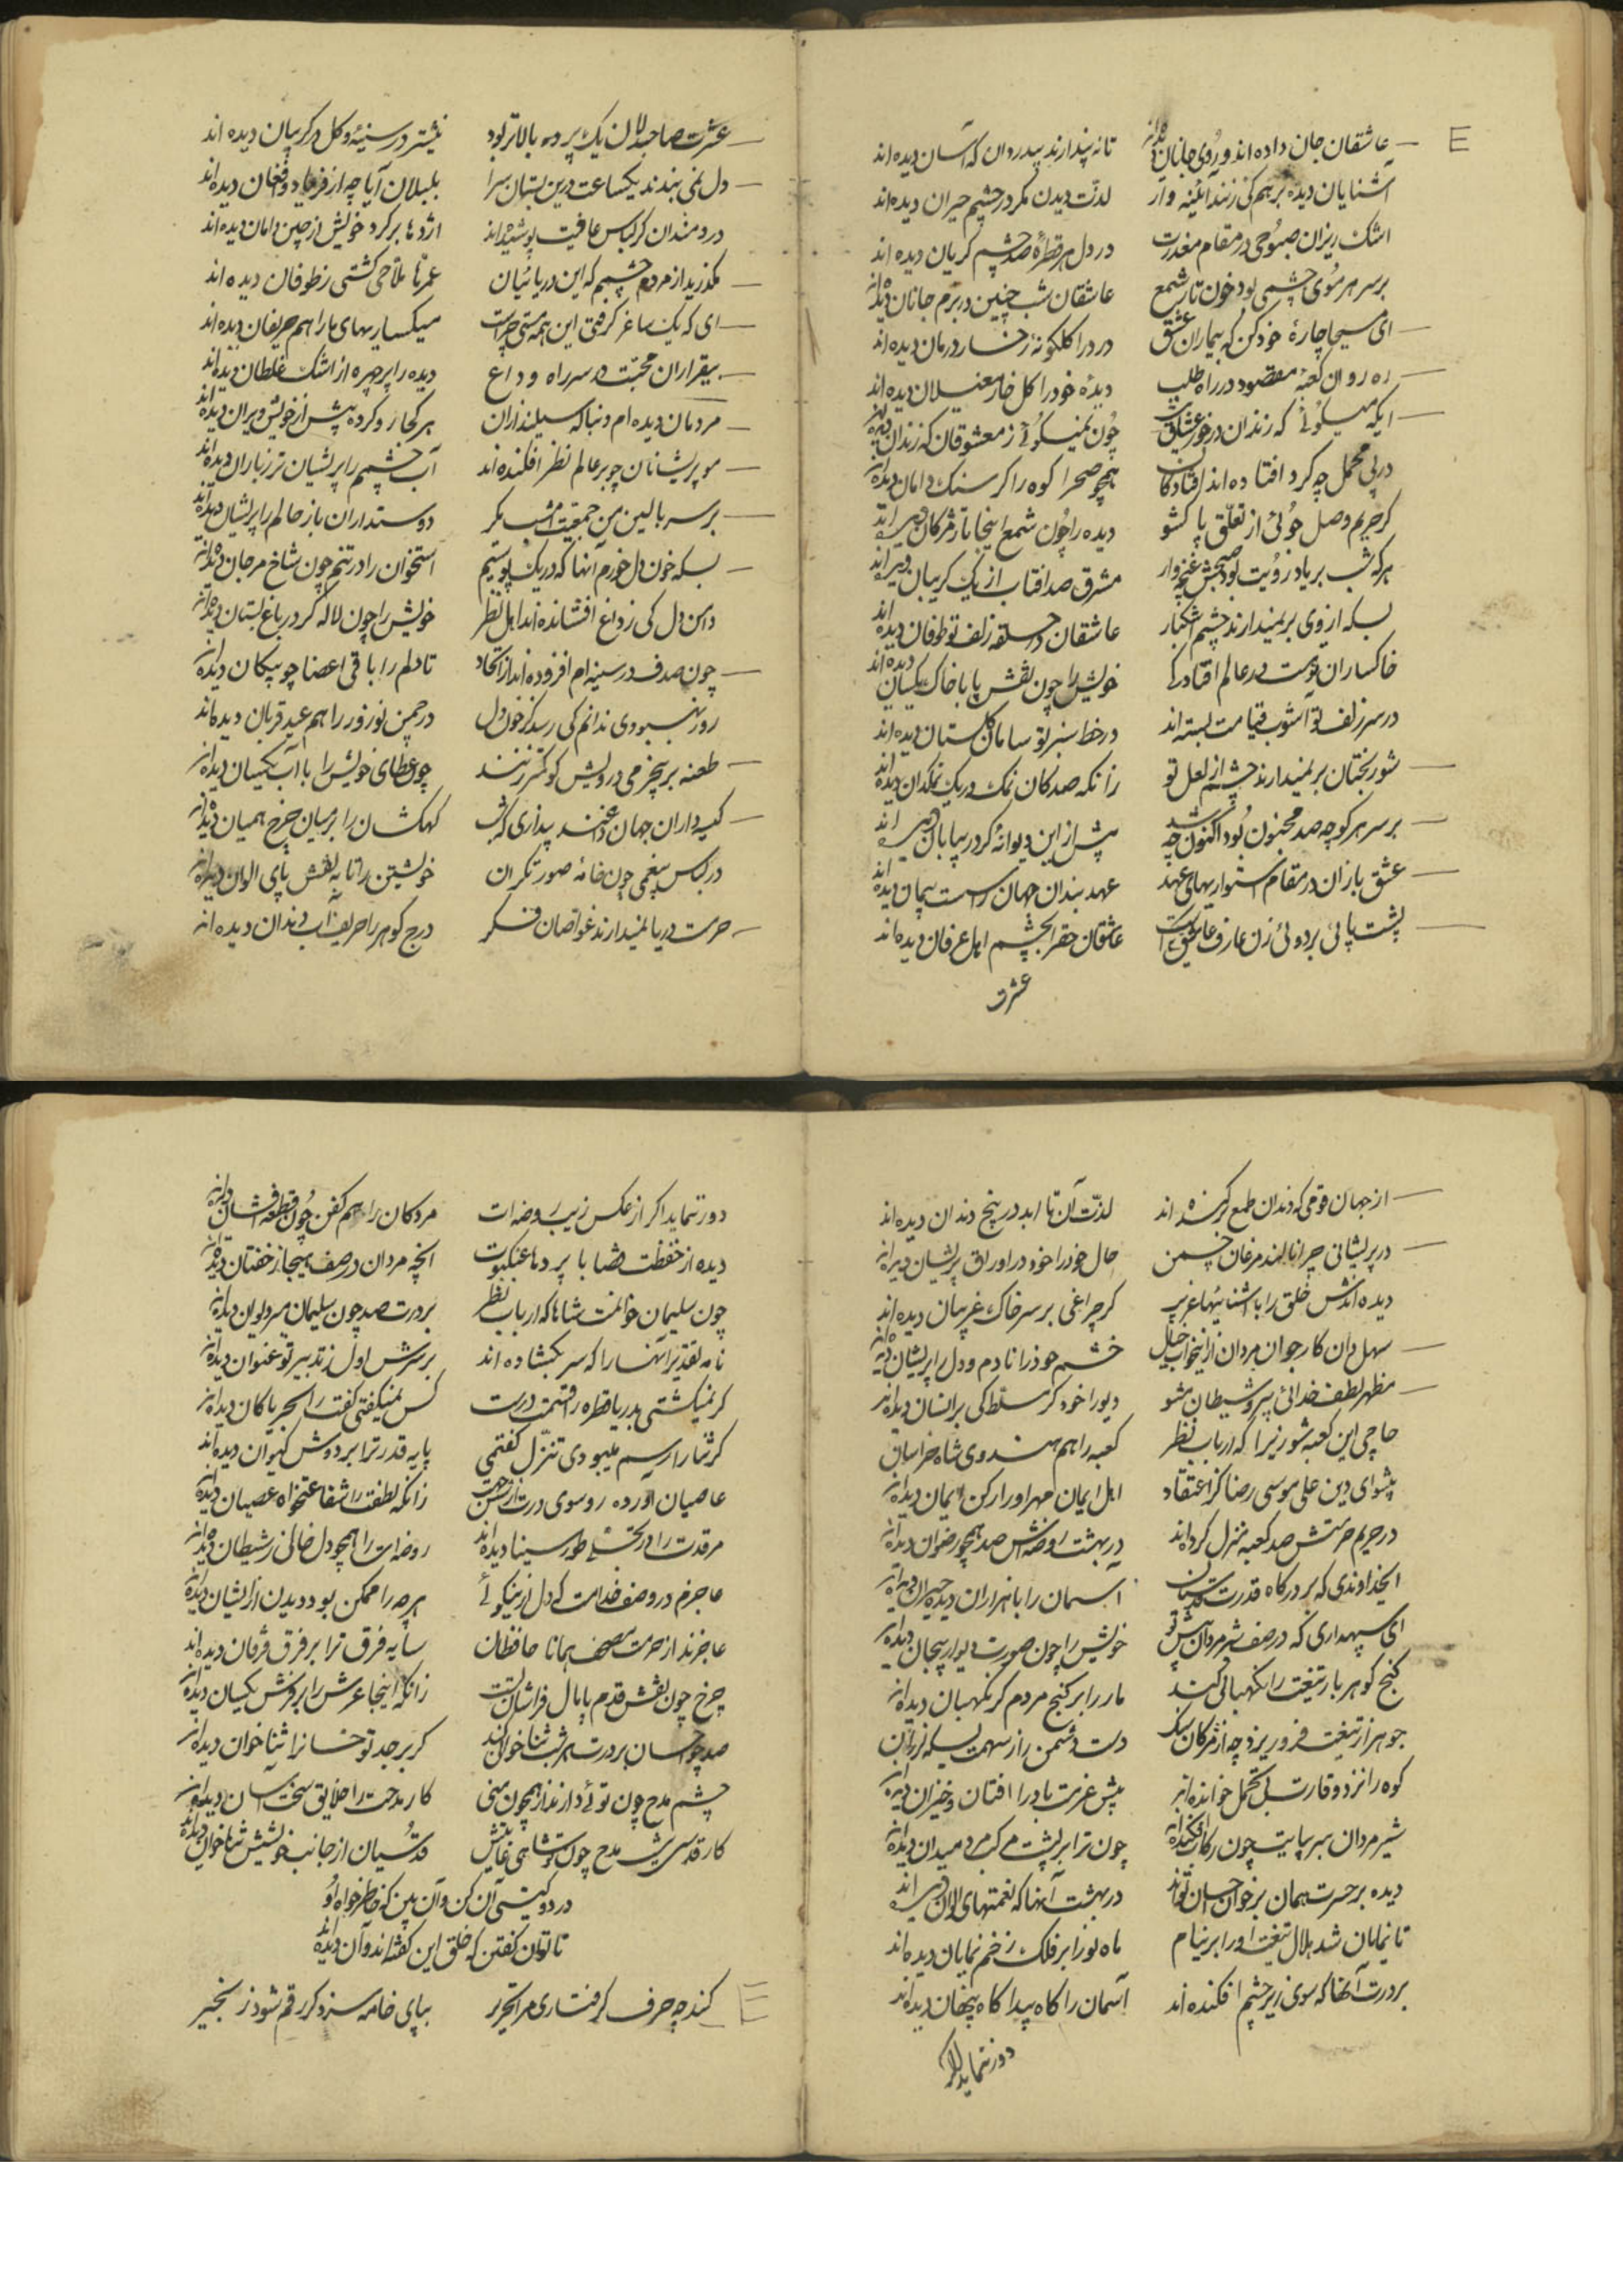 عاشقان جان داده اند و روی جانان دیده اند تا نه پندارند بیدردان که آسان دیده اند
آشنایان دیده بر هم کی زنند آئینه وار لذت دیدن مکر در چشم حیران دیده اند
اشک ریزان صبوحی در مقام معذرت در دل هر قطرهٔ صد چشم کریان دیده اند
بر سر هر موی چشمی بود خون تا شمع عاشقان شب چنین در بزم جانان دیده اند
ای مسیحا چارهٔ خود کن که بیماران عشق درد را کلکونهٔ رخسار درمان دیده اند
ره روان کعبهٔ مقصود در راه طلب دیدهٔ خود را کل خار مغیلان دیده اند
ایکه میکوئی که زندان در خور عشاق چون نمیکوئی ز معشوقان که زندان دیده اند
در پی محمل چه کرد افتاده اند افتادکان همچو صحرا کوه را کر سنک دامان دیده اند
کر حریم وصل جوئی از تعلق پا کشو دیده را چون شمع اینجا تا بمژکان دیده اند
هر که شب بر یاد رویت بود صبحش غنچه وار مشرق صد افتاب از یک کریبان دیده اند
بسکه از وی بر نمیدارند چشم اشکبار عاشقان در حلقه زلف تو طوفان دیده اند
خاکساران تو هست در عالم افتادکی خویش را چون نقش پا با خاک یکسان دیده اند
در سر زلف تو آشوب قیامت بسته اند در خط سبز تو سامان کلستان دیده اند
شور بختان بر نمیدارند چشم از لعل تو زانکه صد کان نمک در یک نمکدان دیده اند
بر سر هر کوچه صد مجنون بود اکنون چه شد پیش ازین دیوانهٔ کر در بیابان دیده اند
عشق بازان در مقام استواریهای عهد عهد بندان جهان را سست پیمان دیده اند
پشت پائی بر دوئی زن عارف عاشق یکیست عاشقان حق را بچشم اهل عرفان دیده اند
عشرت
عشرت صاحبدلان یک پرده بالاتر بود نیشتر در سینهٔ و کل در کریبان دیده اند
دل نمی بندند یکساعت درین بستان سرا بلبلان آیا چه از فریاد و افغان دیده اند
دردمندان کر لباس عافیت پوشیده اند اژدها بر کرد خویش از چین دامان دیده اند
مکذرید از مردم چشمم که این دریائیان عمرها ملاحی کشتی ز طوفان دیده اند
ای که یک ساغر کرفتی این همه مستی چراست میکساریهای ما را هم حریفان دیده اند
بیقراران محبت در سر راه وداع دیده را بر چهره از اشک غلطان دیده اند
مردمان دیده ام دنباله سیلند ازان هر کجا رو کرده پیش از خویش ویران دیده اند
مو پریشانان چو بر عالم نظر افکنده اند آب چشمم را پریشان تر ز باران دیده اند
بر سر بالین من جمعیت امشب مکر دوستداران باز حالم را پریشان دیده اند
بسکه خون دل خورم آنها که در یک پوستیم استخوان را در تنم چون شاخ مرجان دیده اند
دامن دل کی ز داغ افشانده اند اهل نظر خویش را چون لاله کر در باغ بستان دیده اند
چون صدف در سینه ام افزوده اند از اتحاد تا دلم را با قی اعضا چو پیکان دیده اند
روز بهبودی ندانم کی رسد کز خون دل در چمن نوروز را هم عید قربان دیده اند
طعنه بر بیچیزی درویش کو کمتر زنند چون عطای خویش را با آب یکسان دیده اند
کیسه داران جهان در خند پنداری که شب کهکشان را بر میان چرخ همیان دیده اند
در لباس بیغمی چون خامهٔ صورتکران خویشتن را تا به نقش پای الوان دیده اند
حرمت دریا نمیدارند غواصان فکر درج کوهر را حریف آب دندان دیده اند
از جهان قومی که دندان طمع کر کنده اند لذت آن تا ابد در پنج دندان دیده اند
در پریشانی چرا نالند مرغان چمن حال خود را خود در اوراق پریشان دیده اند
دیده اندش خلق را با آشنائیها غریب کر چراغی بر سر خاک غریبان دیده اند
سهل دان کار جوان مردان خشم خود را نادم و دل را پریشان دیده اند
مظهر لطف خدائی پیرو شیطان مشو دیو را خود کر مسلط کی بر انسان دیده اند
حاجی این کعبه شو زیرا که ارباب نظر کعبه را هم هندوی شاه خراسان
پیشوای دین علی موسی رضا کز اعتقاد اهل ایمان مهر او را رکن ایمان دیده اند
در حریم حرمتش صد کعبه منزل کرده اند در بهشت روضه اش صد همچو رضوان دیده اند
ایخداوندی که بر درکاه قدرت آسمان را با هزاران دیده حیران دیده اند
ای سپهداری که در صف شیر مردان پیش تو خویش را چون صورت دیوار بیجان دیده اند
کنج کوهر بار تیغت را نکهبانی کند مار را بر کنج مردم کر نکهبان دیده اند
جوهر از تیغت فرو ریزد چه از مژکان سرشک دست دشمن را ز سهمت بسکه لرزان
کوه را نزد وقارت بی تحمل خوانده اند پیش عزمت باد را افتان و خیزان دیده اند
شیر مردان سر بپایت چون رکاب افکنده اند چون ترا بر پشت مرکب مرد میدان دیده اند
دیده بر حسرت همان بر خوان احسان تواند در بهشت آنها که نعمتهای الوان دیده اند
تا نمایان شد هلال تیغت او را بر نیام ماه نو را بر فلک زخم نمایان دیده اند
بر درت آنها که سوی زیر چشم افکنده اند آسمان را کاه پیدا کاه پنهان دیده اند
دور ننماید اکر
دور ننماید اکر از عکس زیب روضه ات مردکان را هم کفن چون قطعه افشان دیده اند
دیده از حفظت قضا با پردهٔ عنکبوت انچه مردان در صف هیجا ز خفتان دیده اند
چون سلیمان خوانمت شاها که ارباب نظر بر درت صد چون سلیمان میر دیوان دیده اند
نامه تقدیر آنها را که سر بکشاده اند بر سرش اول ز تدبیر تو عنوان دیده اند
کر نمیکشتی بدریا قطره را قیمت درست کس نمیکفتی کفت را بحر یا کان دیده اند
کر ثنا را رسم میبودی تنزل کفتمی پایه قدر ترا بر دوش کیوان دیده اند
عاصیان آورده رو سوی درت زانکه لطفت را شفاعتخواه عصیان دیده اند
مرقدت را در تجلی طور سینا دیده اند روضه ات را همچو دل خالی ز شیطان دیده اند
عاجزم در وصف خدامت که دل از نیکوئی هر چه را ممکن بود دیدن ازیشان دیده اند
عاجزند از حرمت مصحف همانا حافظان سایه فرق ترا بر فرق فرقان دیده اند
چرخ چون نقش قدم پامال فراشان تست زانکه اینجا عرش را بر فرش یکسان دیده اند
صد چو حسان بر درت هر شب ثنا خوانی کند کر بر جد تو حسانرا ثنا خوان دیده اند
چشم مدح چون توئی دارند از همچون منی کار مدحت را خلایق سخت آسان دیده اند
کار قدسی نیست مدح چون تو شاهی غایتش قدسیان از جانب خویشش ثنا خوان دیده اند
در دو کیتی آن کن و آن بین که خاطر خواه او
تا توان کفتن که خلق این کفته اند و آن دیده اند
کند چه حرف کرفتاری مرا تحریر بپای خامه سزد کر رقم شود زنجیر